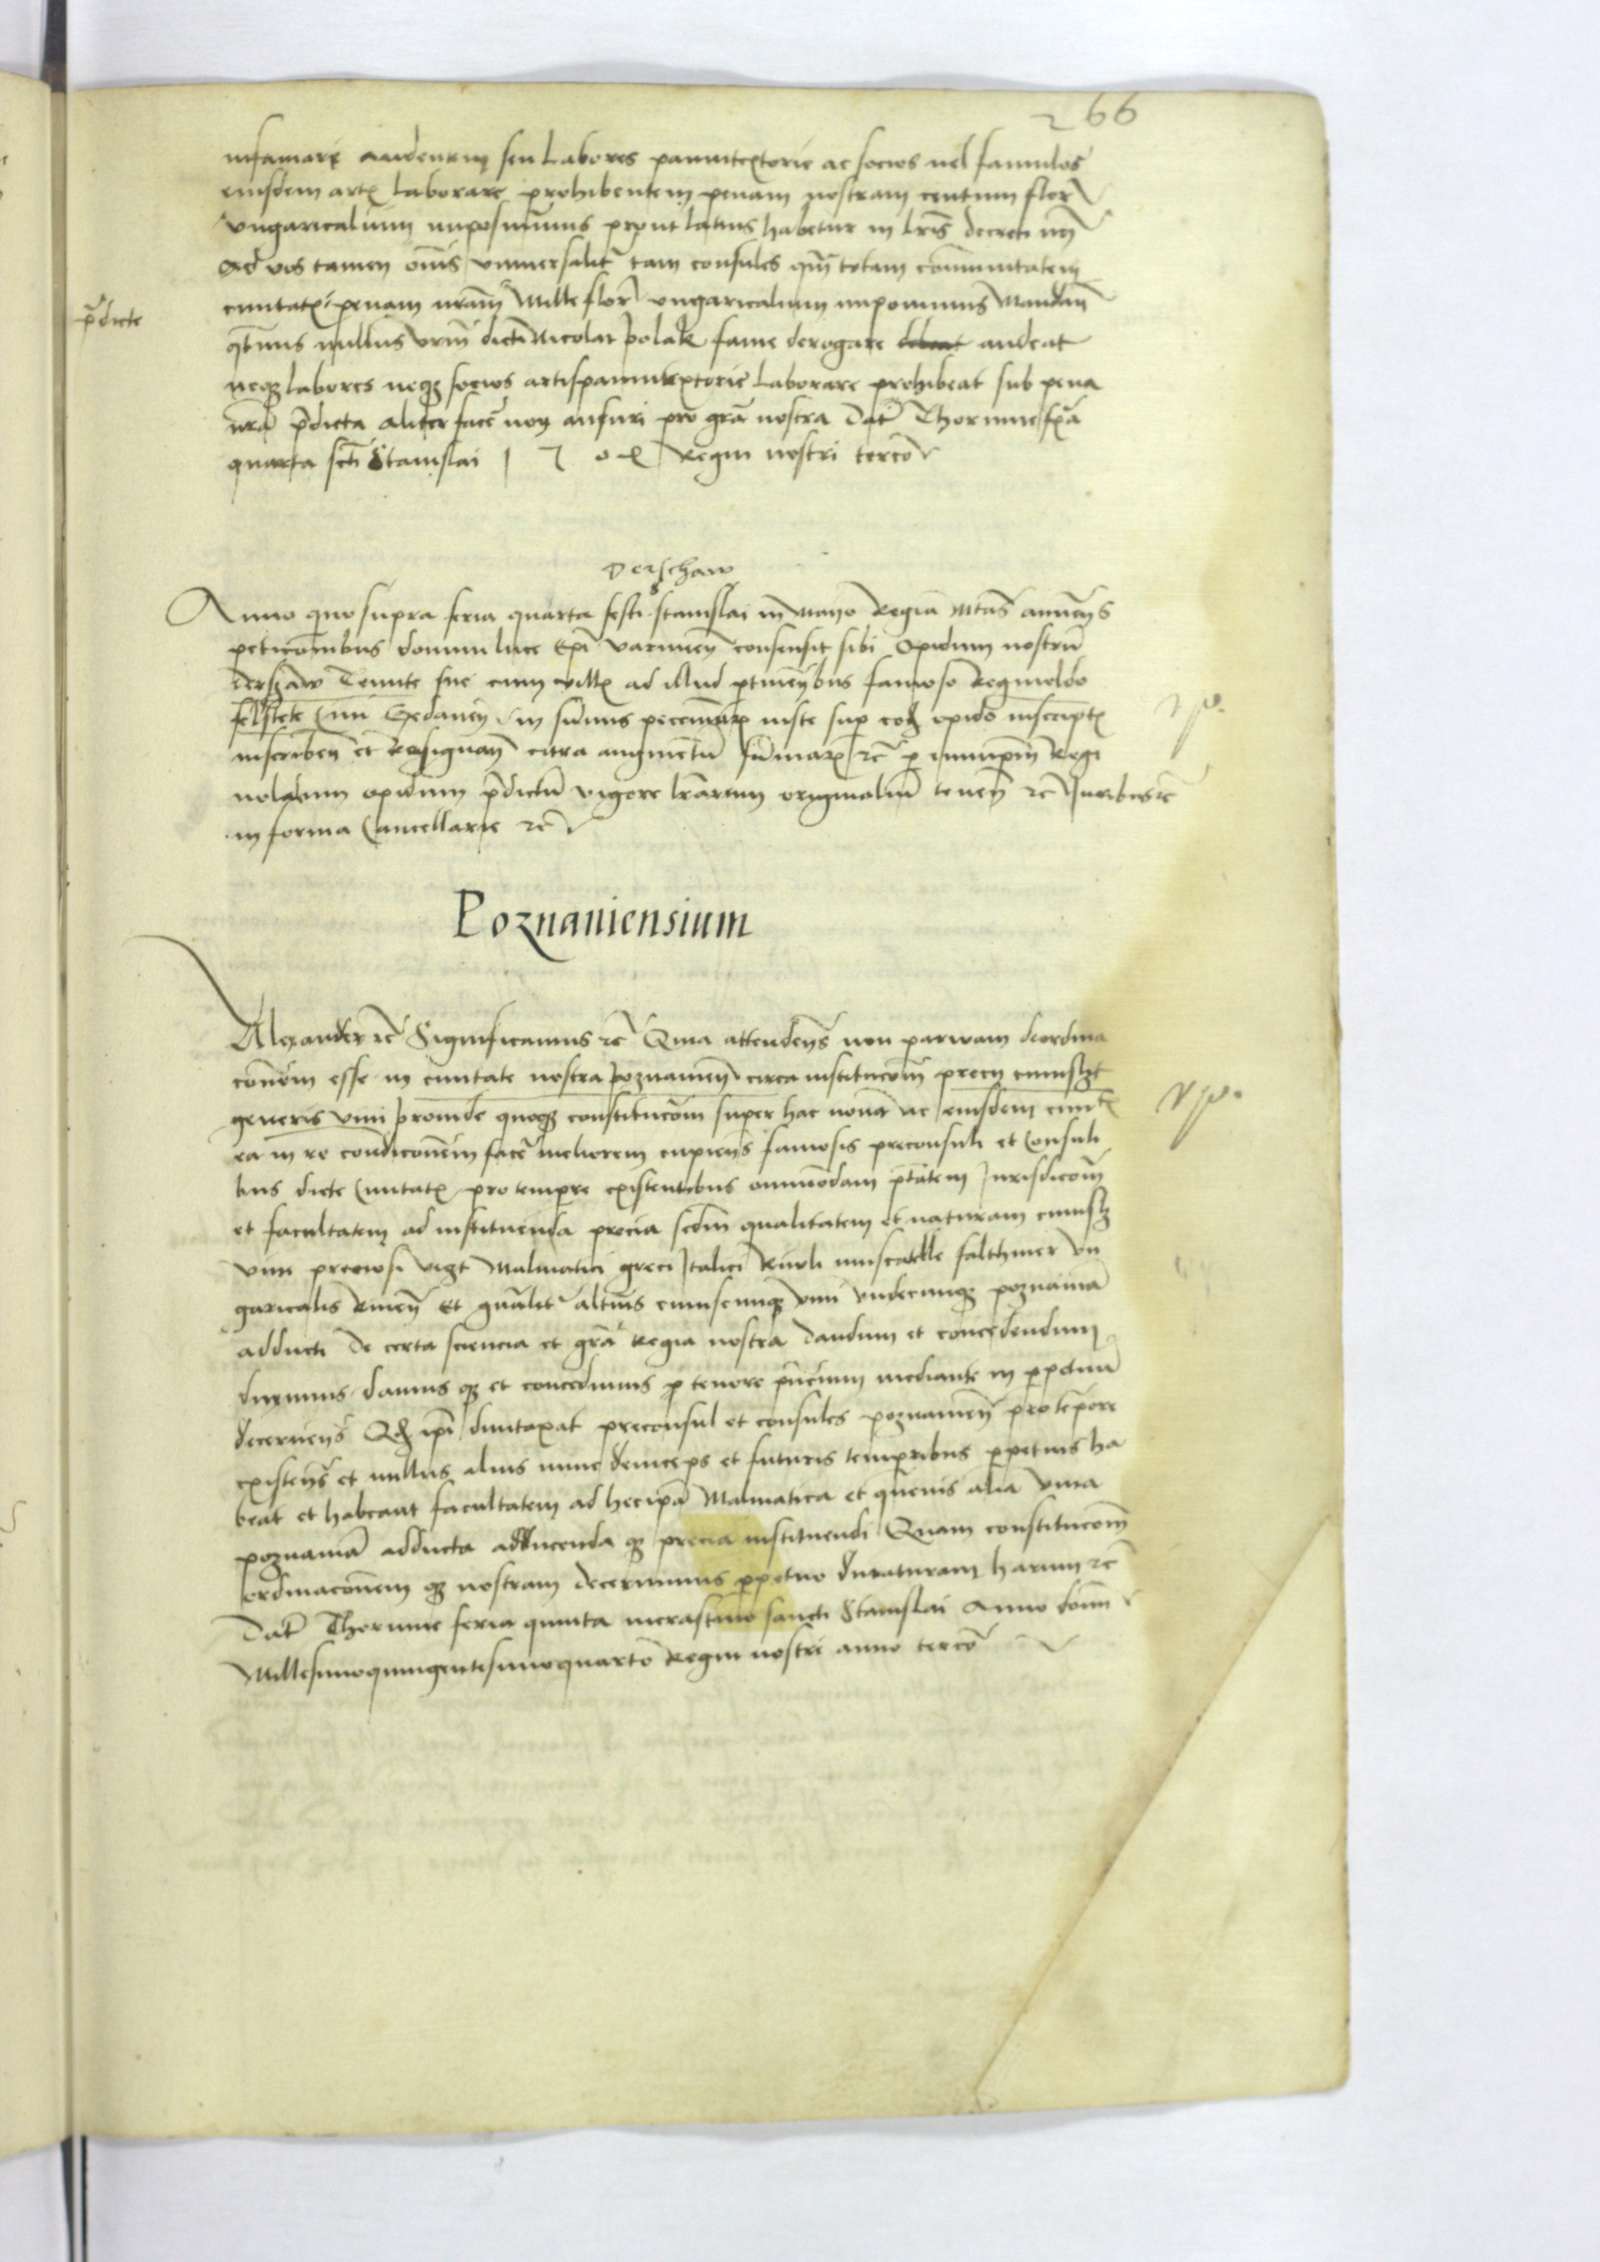 266
infamare audentem seu labores pannitextorie ac socios uel famulos
eiusdem artis laborare prohibentem penam nostram centum flor
vngaricalium imposuimus prout latius habetur in lris decreti nri
Ad vos tamen omnis vniuersalitr tam consules qm totam communitatem
ciuitatis penam nram Mille flor vngaricalium imponimus Mandan
predicte
qtinus nullus vrm dicti Nicolai polak fame derogare audeat
neqz labores neqz socios artis pannitextorie laborare prohibeat sub pena
nra predicta aliter facere non ausuri pro gra nostra Dat Thorunie fia
quarta scti Stanislai 1504 Regni nostri tercio
Derschaw
Anno quo supra feria quarta festi s stanislai in Mayo Regia Mtas annuens
peticionibus domini luce Epi varmien consensit sibi Opidum nostru
derschaw Tenute sue cum villis ad illud ptinentibus famoso Reginoldo
felstete Ciui Gedanen in summis pecuniarum iuste sup eodem opido inscriptis
inscriben et Resignan citra augmentum summarum etc per eumdem Regi
noldum opidum predictum vigore lrarum originalium tenen etc Juribus etc
in forma Cancellarie etc
Poznaniensium
Alexander etc Significamus etc Quia attendens non parwam deordina
cionem esse in ciuitate nostra poznanien circa institucionem precii cuiuslibet
generis vini proinde quoqz constitucionem super hac noua ac eiusdem ciuitatis
ea in re condicionem facere meliorem cupiens famosis preconsuli et Consuli
bus dicte Ciuitatis pro tempore existentibus omnimodam ptatem Jurisdicionem
et facultatem ad instituenda precia scdm qualitatem et naturam cuiuslibet
vini preciosi vigt Malmatici greci Italici Riuoli muscatelle falthiner vn
garicalis Rinen Et gnalitr alterius cuiuscunqz vini vndecunqz poznaniam
adducti De certa sciencia et gra Regia nostra Dandum et concedendum
duximus damus qz et concedimus p tenore pncium mediante in perpetuum
decernens Qd ipi dumtaxat preconsul et consules poznanien pro tempore
existens et nullus alius nunc deinceps et futuris temporibus perpetuis ha
beat et habeant facultatem ad hec ipa Malmatica et queuis alia vina
poznaniam adducta adducenda qz precia instituendi Quam constitucionem
ordinacionem qz nostram decernimus perpetuo duraturam harum etc
Dat Thorunie feria quinta in crastino sancti Stanislai Anno domini
Millesimoquingentesimoquarto Regni nostri anno tercio